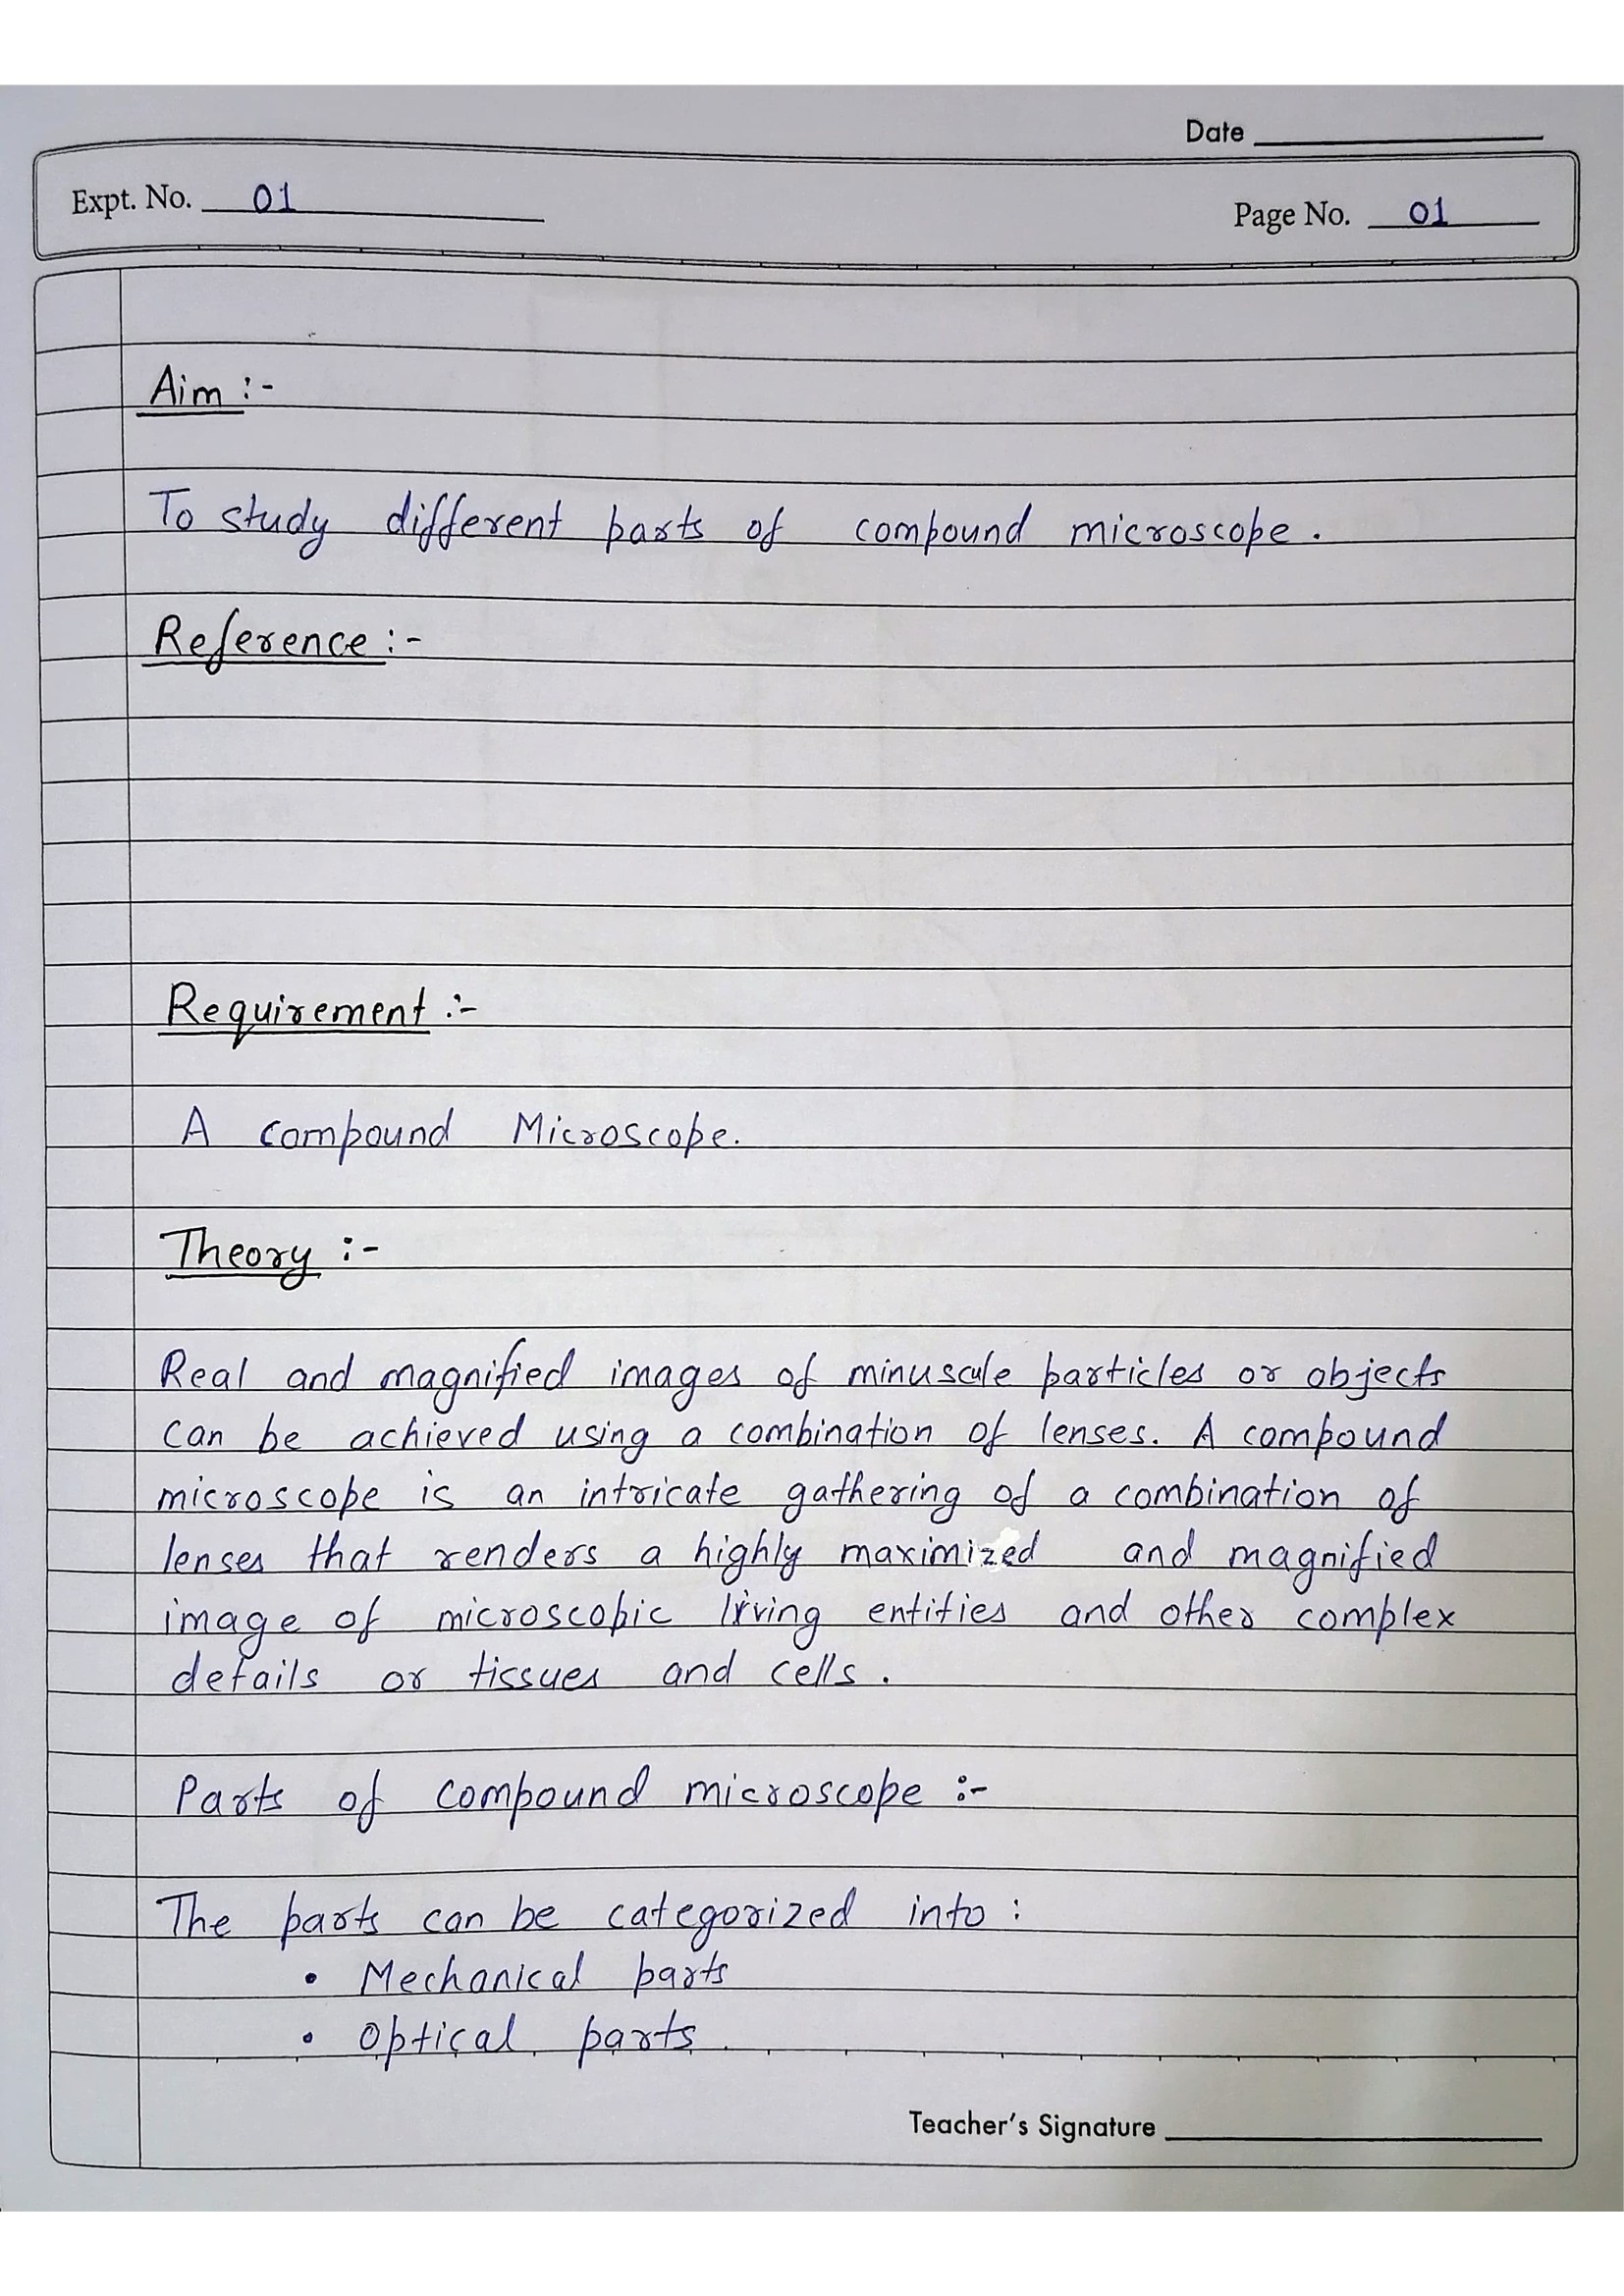 Date
Expt. No. 01
Page No. 01
Aim :-
To study different parts of compound microscope.
Reference :-
Requirement :-
A compound Microscope.
Theory :-
Real and magnified images of minuscule particles or objects
can be achieved using a combination of lenses. A compound
microscope is an intricate gathering of a combination of
lenses that renders a highly maximized and magnified
image of microscopic living entities and other complex
details or tissues and cells.
Parts of compound microscope :-
The parts can be categorized into :
• Mechanical parts
• Optical parts.
Teacher's Signature